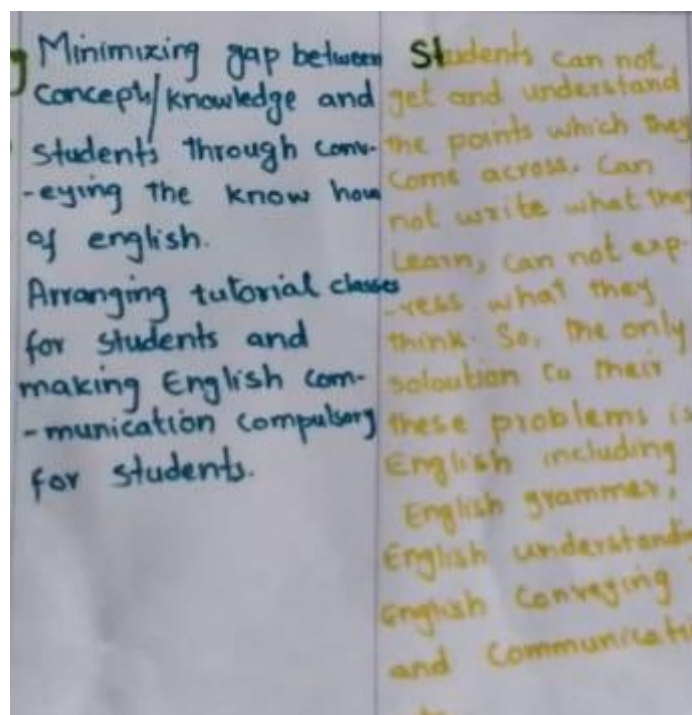 Minimizing gap between
Concept/knowledge and
students through conv-
-eying the know how
of english.
Arranging tutorial classes
for students and
making English com-
-munication compulsory
for students.
Students can not
get and understand
the points which they
Come across. Can
not write what they
Learn, can not exp-
-ress what they
think. So, the only
soloution to their
these problems is
English including
English grammer,
English understandin
English Conveying
and Communicati